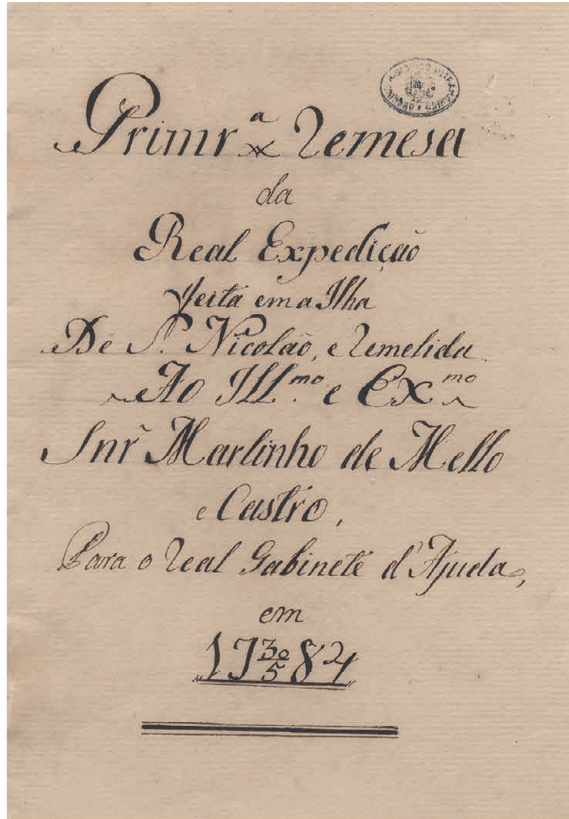 Primr.ª Remesa
da
Real Expedição
feita em a Ilha
De S. Nicolaõ, e remetida
Ao Ill.mo e Ex.mo
Snr Martinho de Mello
e Castro,
Para o Real Gabinete d'Ajuda,
em
17 30/5 84